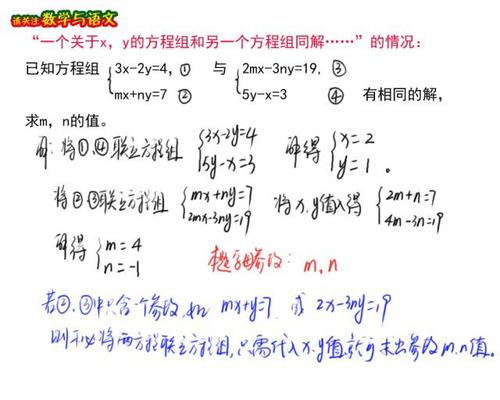 请关注 数学与语文
“一个关于x，y的方程组和另一个方程组同解……”的情况：
已知方程组 { 3x-2y=4， ① 与 { 2mx-3ny=19， ③
mx+ny=7 ② 5y-x=3 ④ 有相同的解，
求m，n的值。
解：将①、④联立方程组 { 3x-2y=4 解得 { x=2
5y-x=3 y=1 。
将②、③联立方程组 { mx+ny=7 将x、y值入得 { 2m+n=7
2mx-3ny=19 4m-3n=19
解得 { m=4 本题字母参数：m,n
n=-1
若②、③中只含一个参数，如 mx+y=7 或 2x-3ny=19
则不必将两方程联立方程组，只需代入x、y值就可求出参数m、n值。